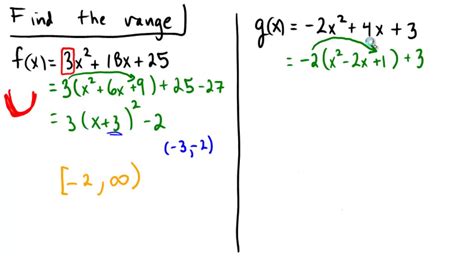 Find the range
f(x) = 3x² + 18x + 25
= 3(x² + 6x + 9) + 25 - 27
= 3(x + 3)² - 2
(-3, -2)
[-2, ∞)
g(x) = -2x² + 4x + 3
= -2(x² - 2x + 1) + 3